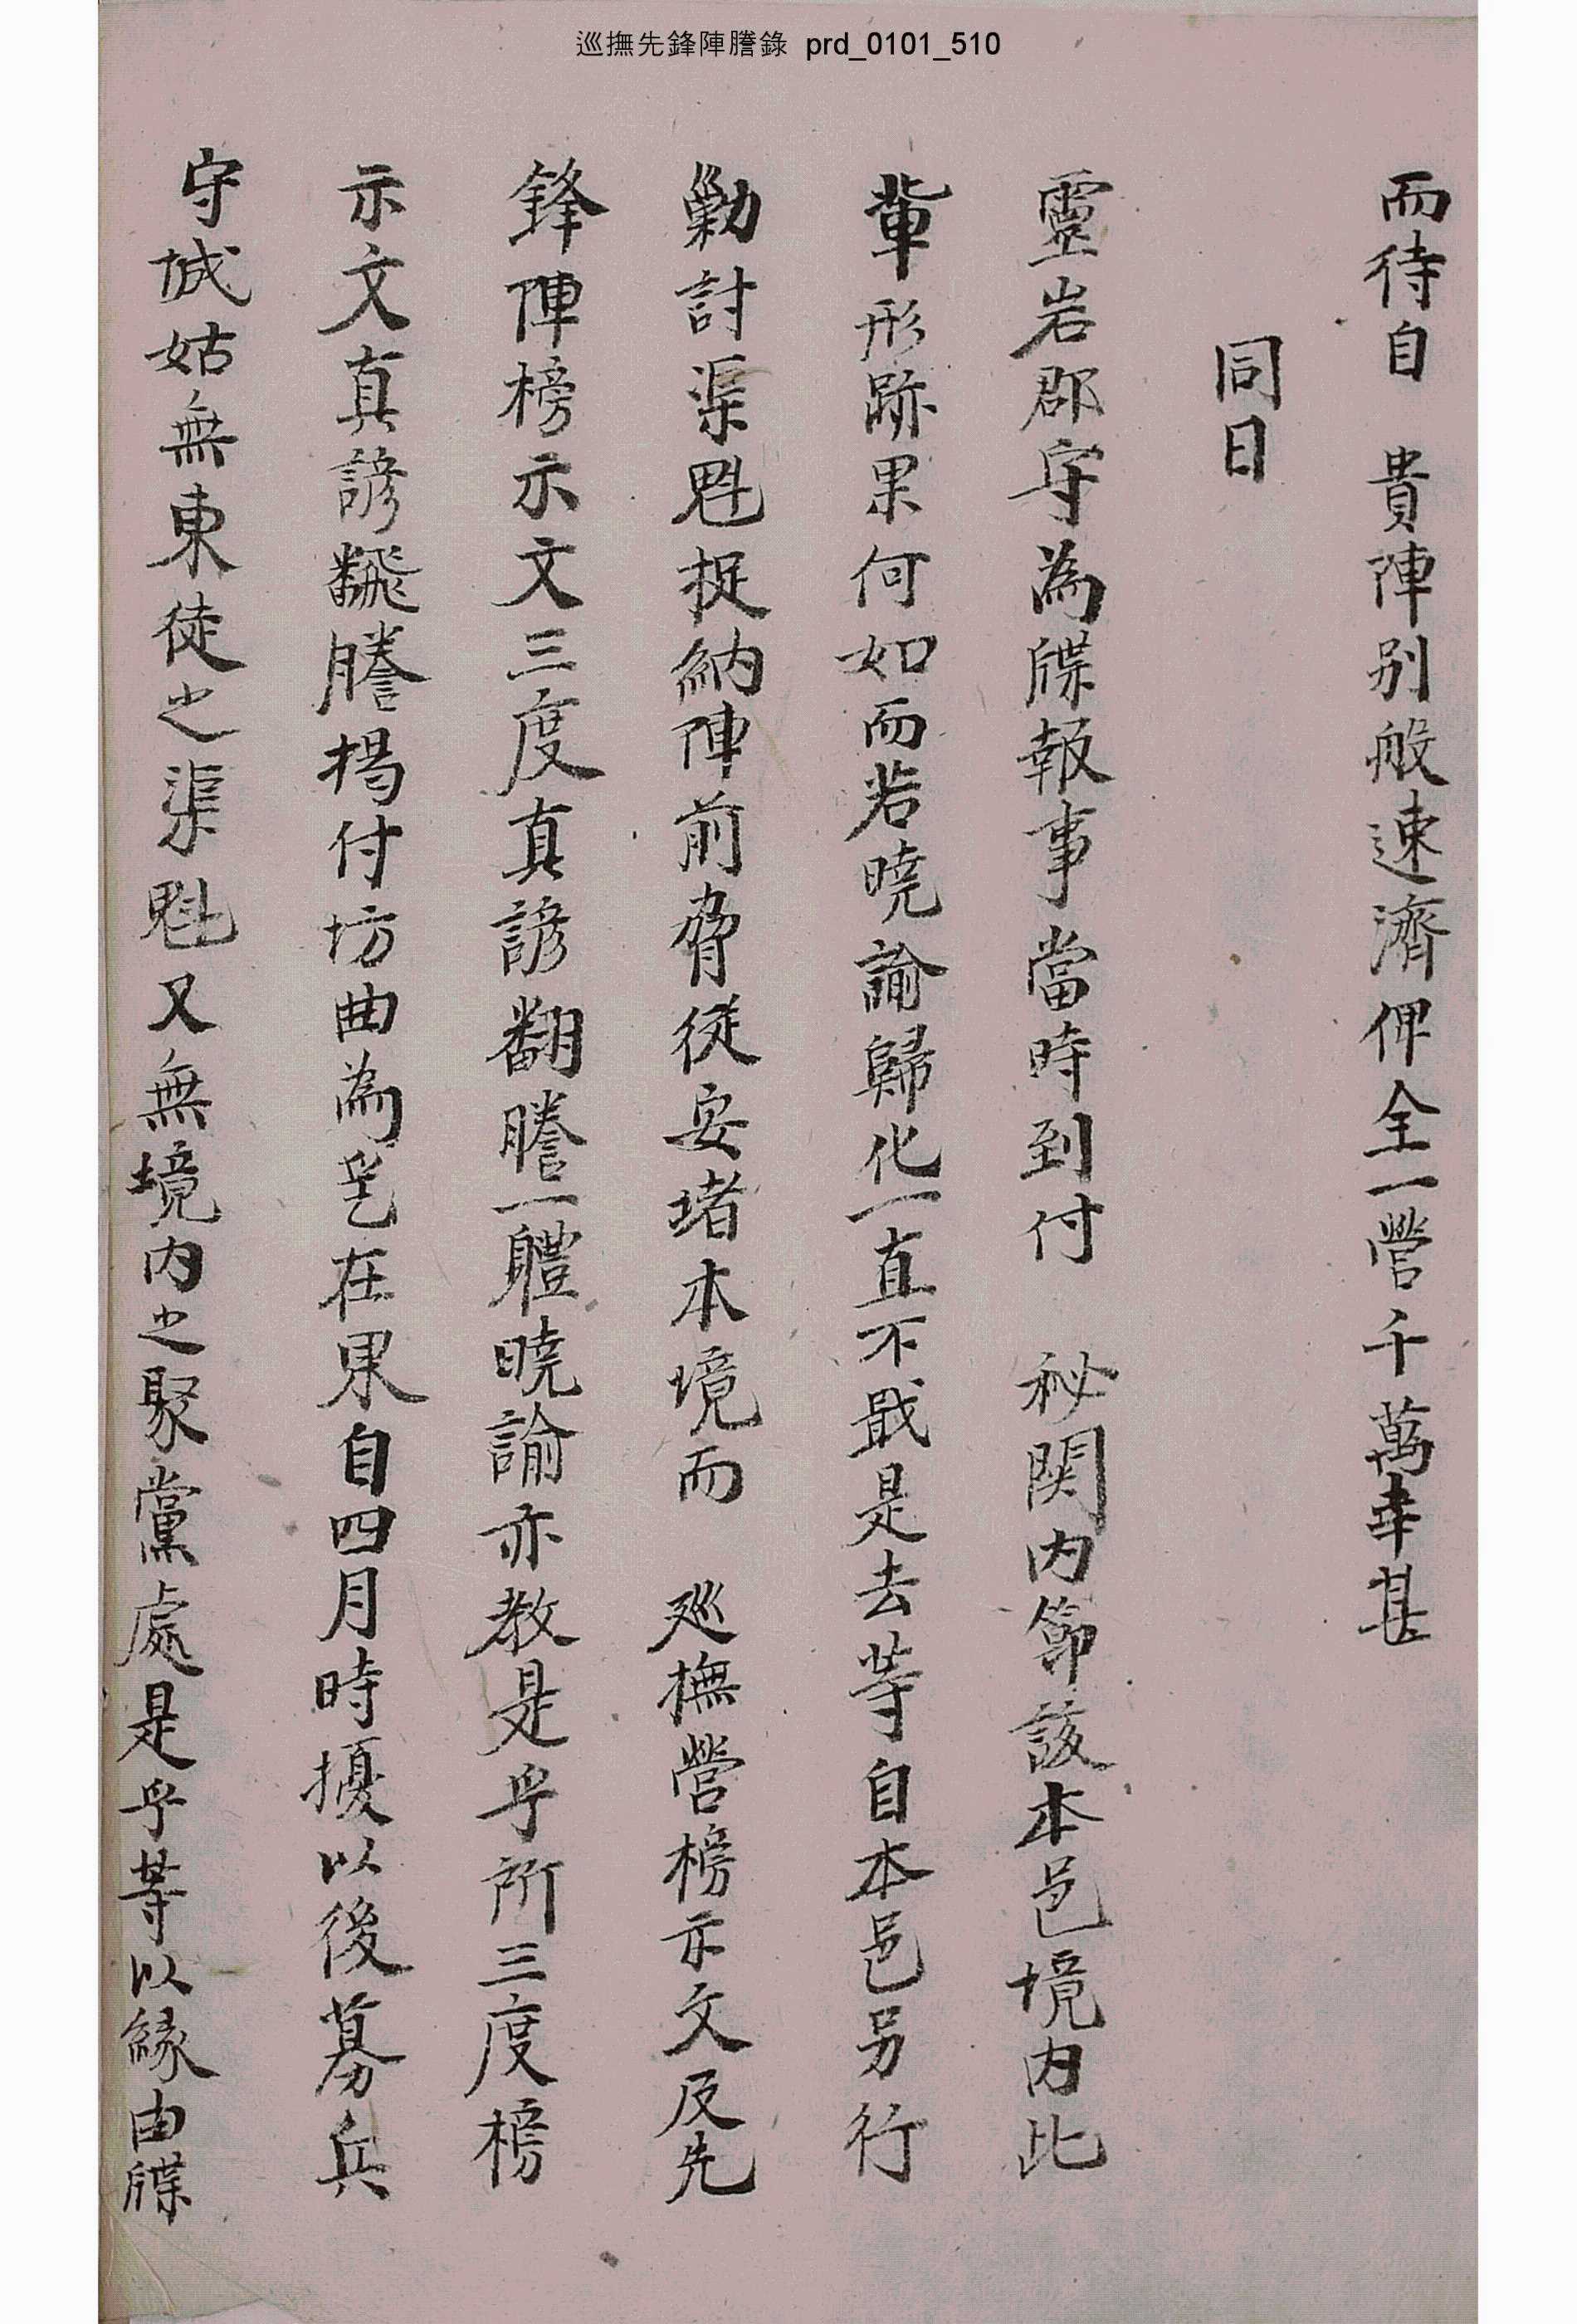 巡撫先鋒陣謄錄 prd_0101_510
而待自 貴陣別般速濟俾全一營千萬幸甚
同日
靈岩郡守為牒報事當時到付 秘関内節該本邑境内此
軰形跡果何如而若曉諭歸化一直不戢是去等自本邑另行
勦討渠魁捉納陣前脅從安堵本境而 廵撫營榜示文及先
鋒陣榜示文三度真諺翻謄一軆曉諭亦教是乎所三度榜
示文真諺飜謄揭付坊曲為乎㫆在果自四月時擾以後募兵
守城姑無東徒之渠魁又無境内之聚黨處是乎等以緣由牒